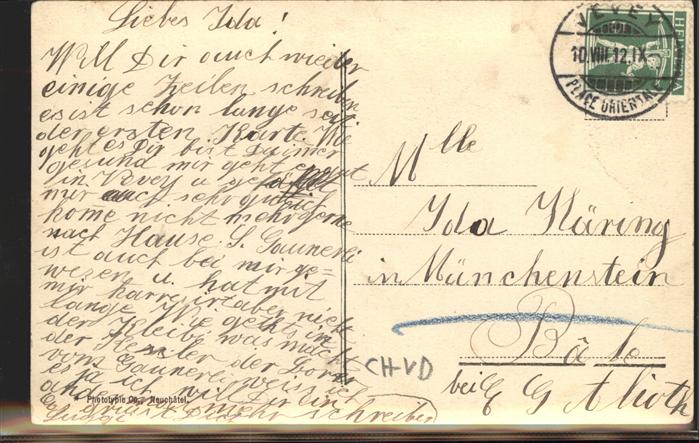 Liebes Ida!
Will Dir auch wieder
einige Zeilen schreiben
es ist schon lange seit
der ersten Karte. Wie
geht es Dir bist Du immer
gesund mir geht es gut
in Vevey u. gefällt
mir auch sehr gut ich
kome nicht mehr gerne
nach Hause S. Gaunerli
ist auch bei mir ge-
wezen u. hat mit
mir aber nicht
lange Wie gehts in
der Kleibe was macht
der der
vom Gaunerli weiss ich
es ja ich will Dir ein
ander mal mehr schreiben
Phototypie Co., Neuchâtel.
VEVEY
10.VIII.12.IX
PLACE ORIENTALE
HELVETIA
Mlle
Ida Häring
in Münchenstein
Bâle
bei E G Alioth
CH-VD